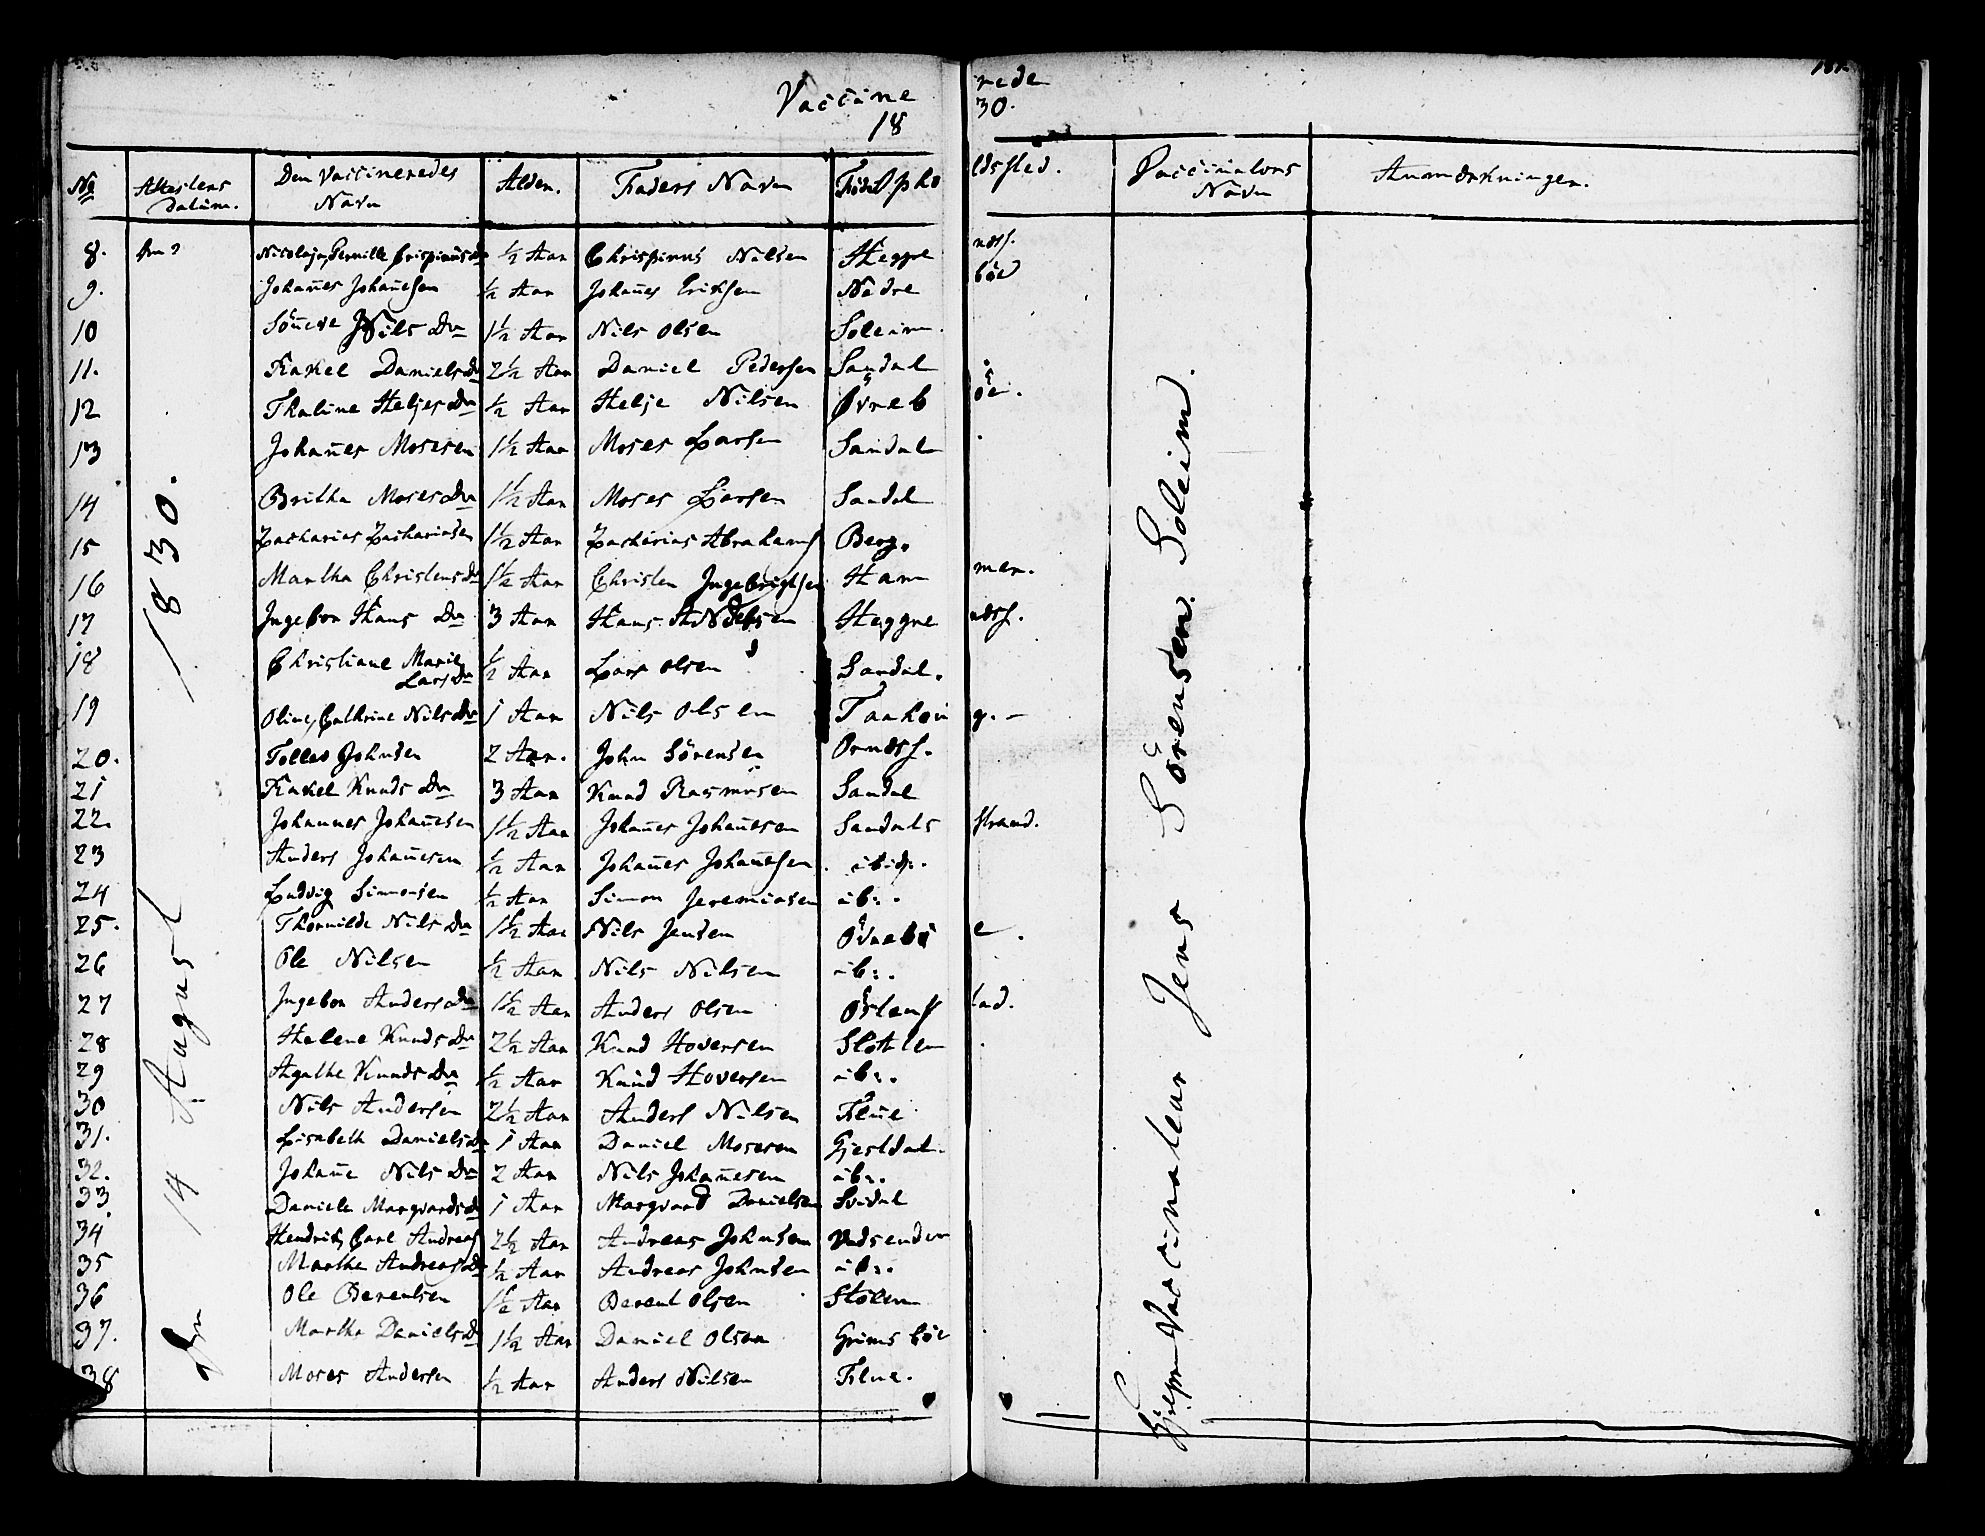 Vaccinerede
1830.
No Attestens Datum. Den Vaccineredes Navn Alder. Faders Navn Opholdssted. Vaccinateurs Navn Anmærkninger.
8. Nicolaja Pernille Crispinus Dr ½ Aar Chrispinus Nilsen Heggrendss.
9. Johan̄es Johan̄esen ½ Aar Johan̄es Eriksen Nedreböe
10 Sön̄eve Nils Dr 1½ Aar Nils Olsen Soleim.
11. Rakel Daniels Dr 2½ Aar Daniel Pedersen Sandal
12 Thaline Heljes Dr ½ Aar Helje Nilsen Øvreböe.
13 Johan̄es Mosesen 1½ Aar Moses Larsen Sandal.
14 Britha Moses Dr 1½ Aar Moses Larsen Sandal
15 Zacharias Zachariasen 1½ Aar Zacharias Abrahams Berg.
16 Martha Christens Dr 1½ Aar Christen Ingebrigtsen Hammer.
17 Ingebor Hans Dr 3 Aar Hans Nilsen Heggrendss.
18 Christiane Marie Lars Dr ½ Aar Lars Olsen Sandal.
19 Oline Cathrine Nils Dr 1 Aar Nils Olsen Taahoug.
20. Tollas Johnsen 2 Aar. John Sörensen Ornæss.
21 Rakel Knuds Dr 3 Aar Knud Rasmusen Sandal
22. Johannes Johan̄esen 1½ Aar Johan̄es Johan̄esen Sandals strand.
23 Anders Johan̄esen ½ Aar Johan̄es Johan̄esen ibid.
24 Ludvig Simonsen ½ Aar Simon Jeremiasen ib:.
25. Thornilde Nils Dr 1½ Aar Nils Jensen Övreböe.
26 Ole Nilsen ½ Aar Nils Nilsen ib:.
27 Ingebor Anders Dr 1½ Aar Anders Olsen Östenstad.
28 Helene Knuds Dr 2½ Aar Knud Hoversen Slotten.
29 Agathe Knuds Dr ½ Aar Knud Hoversen ib:.
30 Nils Andersen 2½ Aar Anders Nilsen Flue
31. Lisabeth Daniels Dr 1 Aar Daniel Mosesen Gjesdal.
32. Johan̄e Nils Dr 2 Aar Nils Johan̄esen ib:.
33 Daniele Marqvards Dr 1 Aar Marqvard Danielsen Svidal
34 Hendrik Carl Andreas 2½ Aar Andreas Johnsen Indsenden
35 Marthe Andreas Dr ½ Aar Andreas Johnsen ib:.
36 Ole Berentsen 1½ Aar Berent Olsen Stölen
37. Martha Daniels Dr 1½ Aar Daniel Olsen Grimsböe.
38 Moses Andersen ½ Aar Anders Nilsen Flue.
Den 14 August 1830.
Hjelpe Vaccinateur Jens Sörensen Soleim.